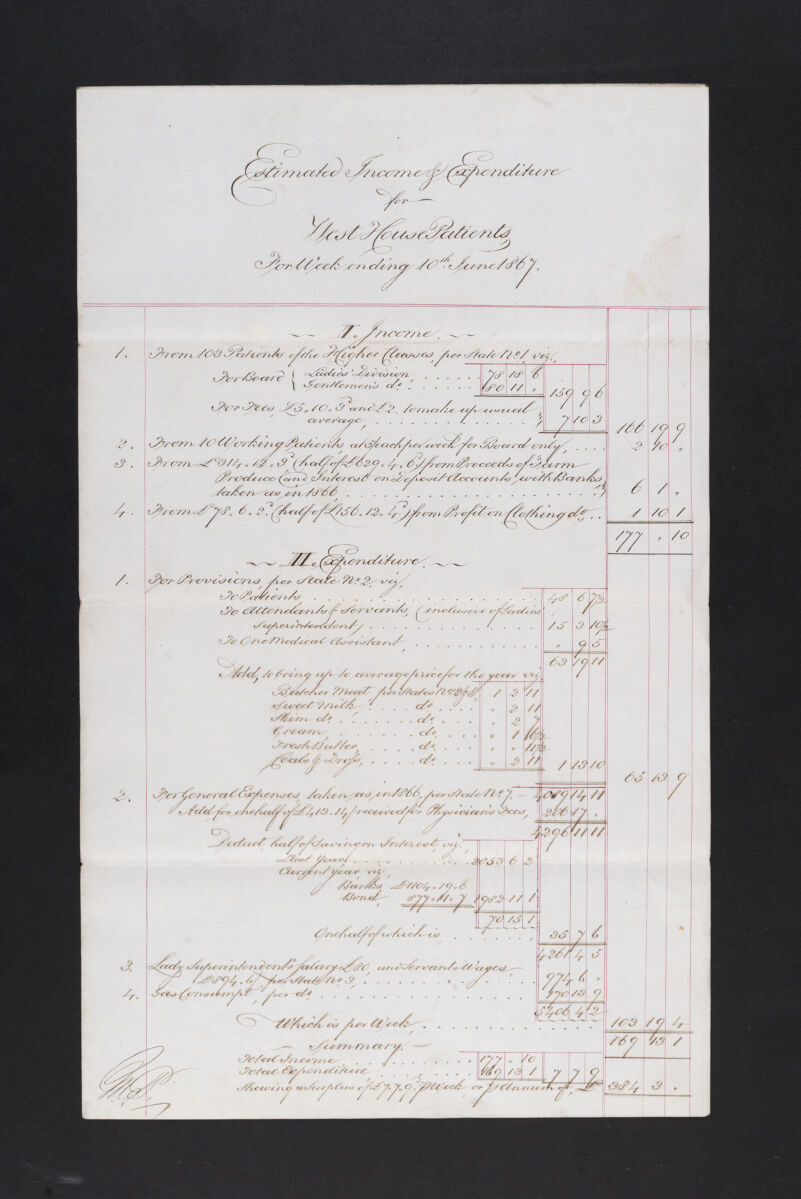 Estimated Income & Expenditure
for
West House Patients,
For Week ending 10th June 1867.
I. Income.
1. From 103 Patients of the Higher Classes, per State No 1, viz.,
For Board { Ladies' Division . . . . . . 78 18 6
Gentlemen's do . . . . . . 80 11 " 159 9 6
For Fees, £5.10.3 and £2, to make up usual
average, . . . . . . . . . . . . 7 10 3 166 19 9
2. From 10 Working Patients at 5/ each per week for Board only, . . . . 2 10 "
3. From £314.12.3 (half of £629.4.6) from Proceeds of Farm
Produce (and Interest on Deposit Accounts) with Banks,
taken as in 1866, . . . . . . . . . . . . 6 1 "
4. From £78.6.2 (half of £156.12.4) from Profit on Clothing do . . 1 10 1
177 " 10
II. Expenditure.
1. For Provisions, per State No 2, viz,
To Patients . . . . . . . . . . . . 48 6 7½
To Attendants & Servants, (inclusive of Ladies'
Superintendent) . . . . . . . . . . . . 15 3 10½
To One Medical Assistant, . . . . . . . . " 9 5
63 19 11
Add, to bring up to average price for the year viz,
Butcher Meat per States Nos 2 & 8, 1 2 11
Sweet Milk . . . . do . . . . " 2 11
Skim do . . . . . do . . . . " 2 7
Cream, . . . . . do . . . . " 1 6½
Fresh Butter, . . . . do . . . . " " 11½
Coals & Dross, . . . . do . . . . " 2 11 1 13 10
65 13 9
2. For General Expenses, taken as in 1866, per State No 7. 4089 14 11
Add for one half of £413.14/ received for Physician's Fees, 206 17 "
4296 11 11
Deduct half of saving on Interest, viz.,
Last Year, . . . . . . . . . . 2053 6 2
Current Year, viz,
Banks, £1104.19.6
Bond, 877.11.7 1982 11 1
70 15 1
One half of which is, . . . . . . . 35 7 6
4261 4 5
3. Lady Superintendent's Salary £80, and Servants Wages
£894.6/ per State No 3, . . . . . . . . . . 974 6 "
4. Gas Consumpt, per do . . . . . . . . . . 170 13 9
5406 4 2
Which is per Week . . . . . . . . . . 103 19 4
169 13 1
Summary.
Total Income . . . . . . . . . . 177 " 10
Total Expenditure . . . . . . . . 169 13 1 7 7 9
Shewing a Surplus of £7.7.9 p Week or p Annum of, £ 384 3 "